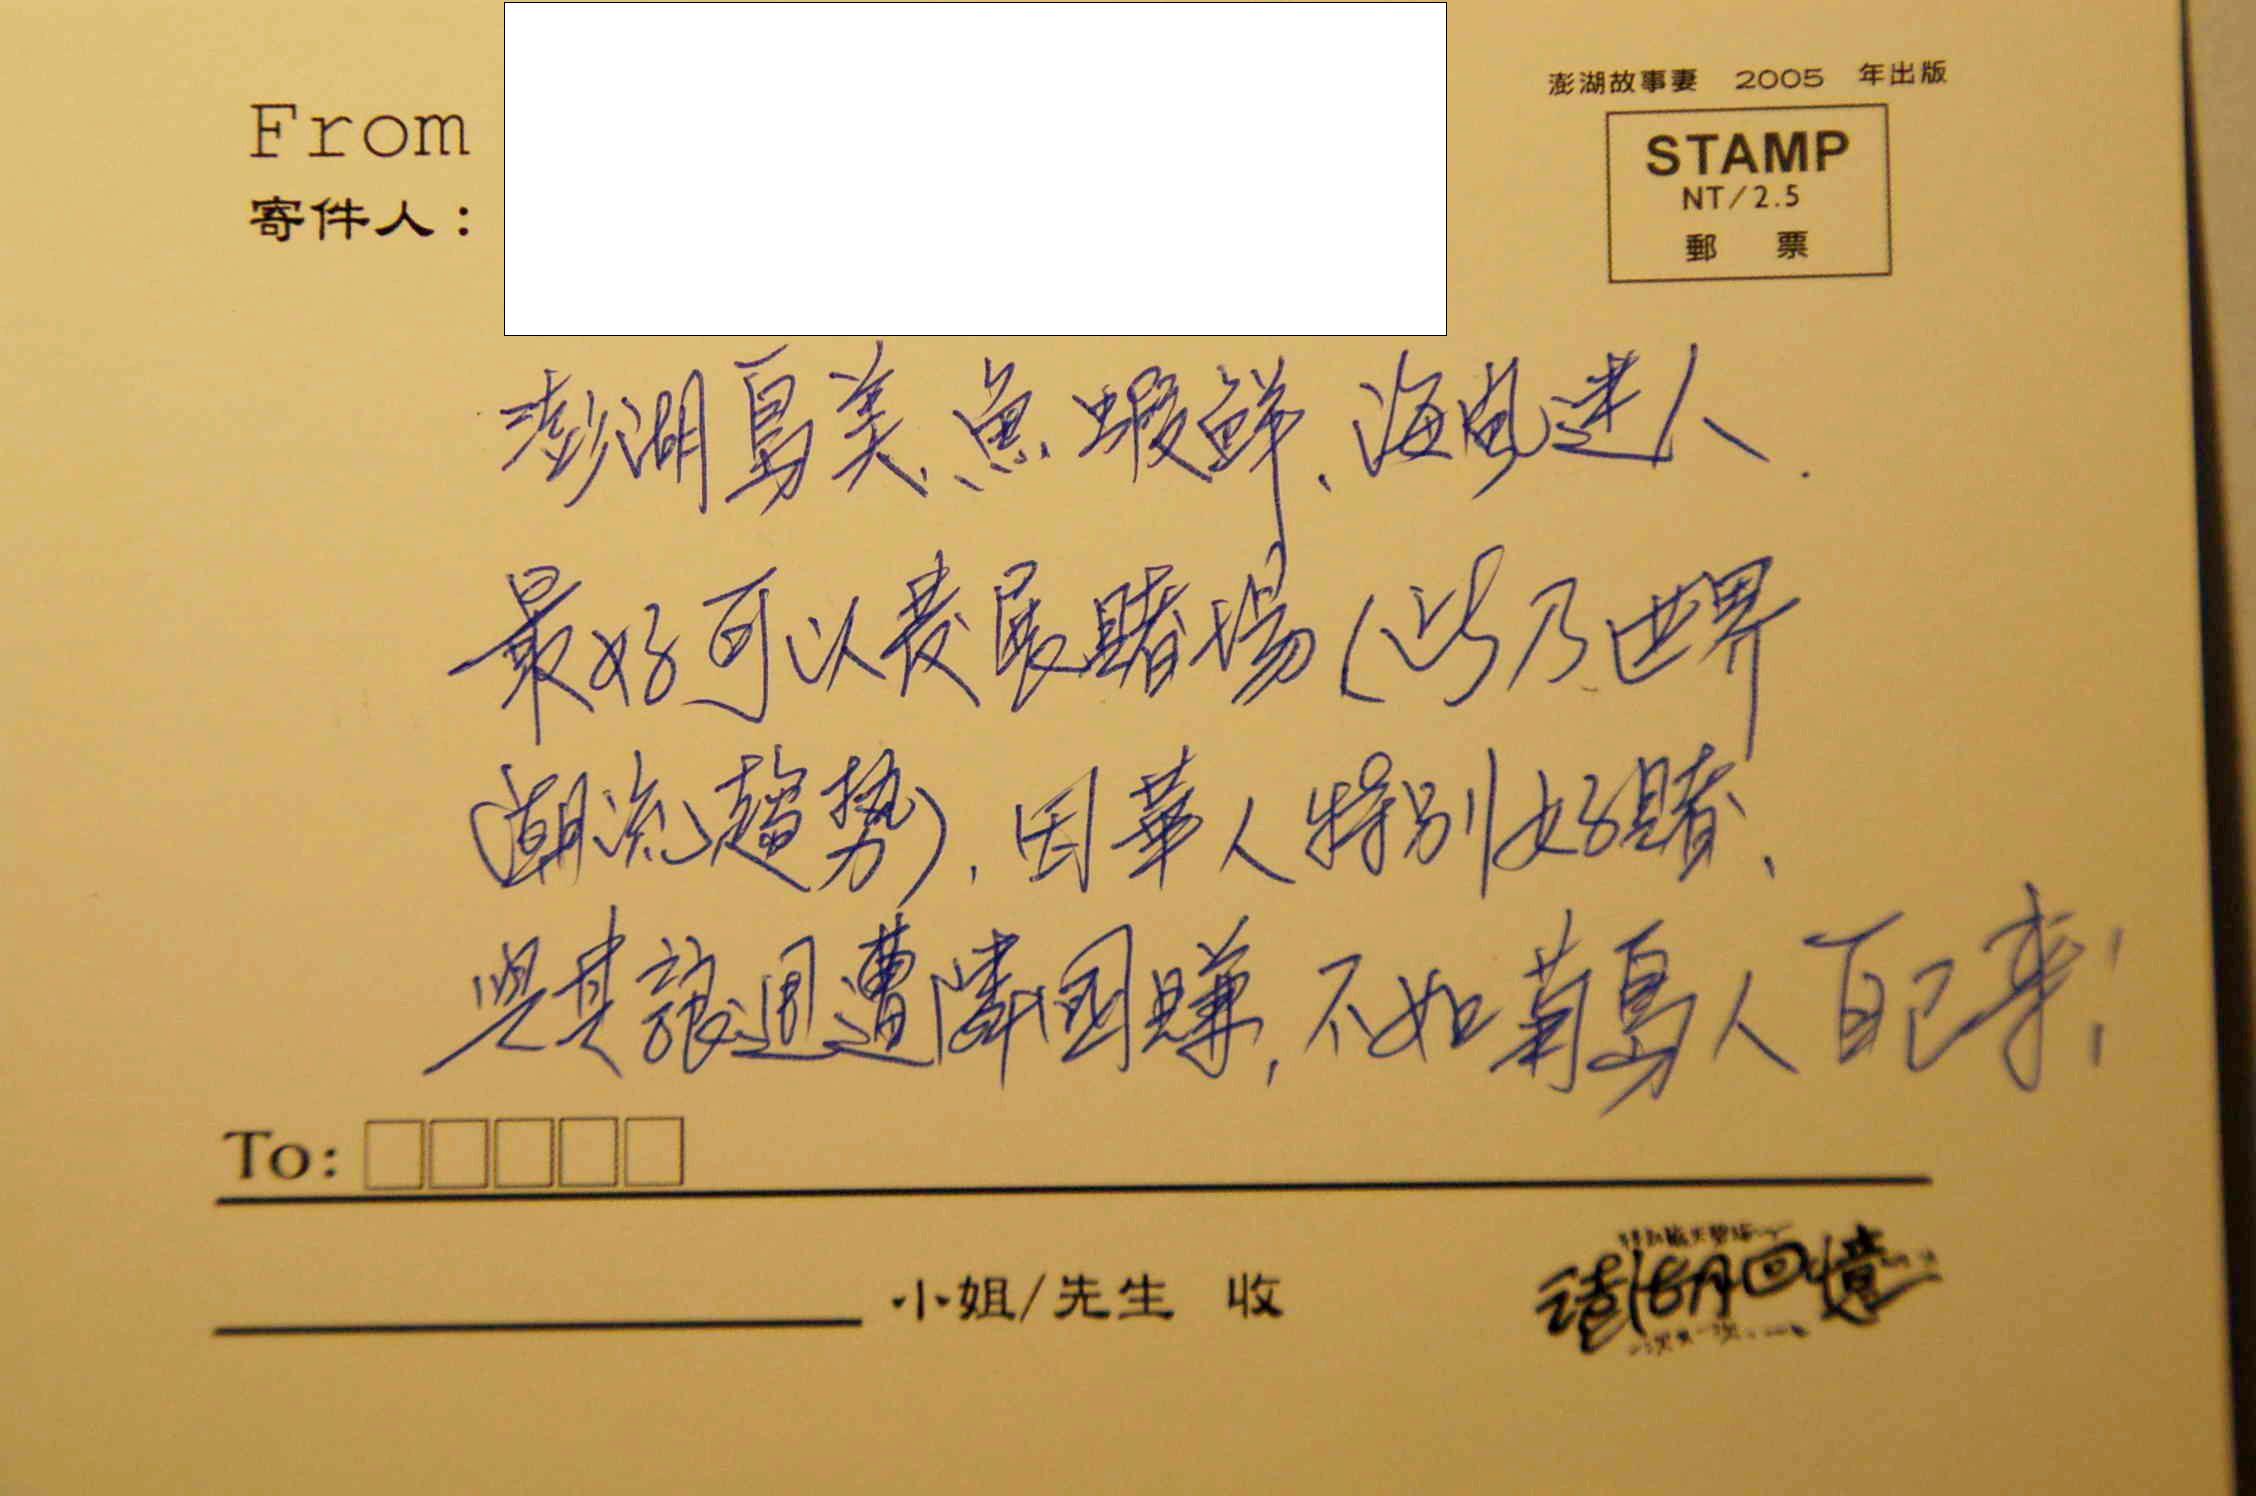 澎湖故事妻 2005 年出版
From
寄件人：
STAMP
NT/2.5
郵 票
澎湖島美、魚蝦鮮、海風迷人.
最好可以發展賭場(此乃世界
(潮流趨勢)，因華人特別好賭、
與其讓週遭隣國賺，不如菊島人自己來！
To:
小姐/先生 收
澎湖月回憶